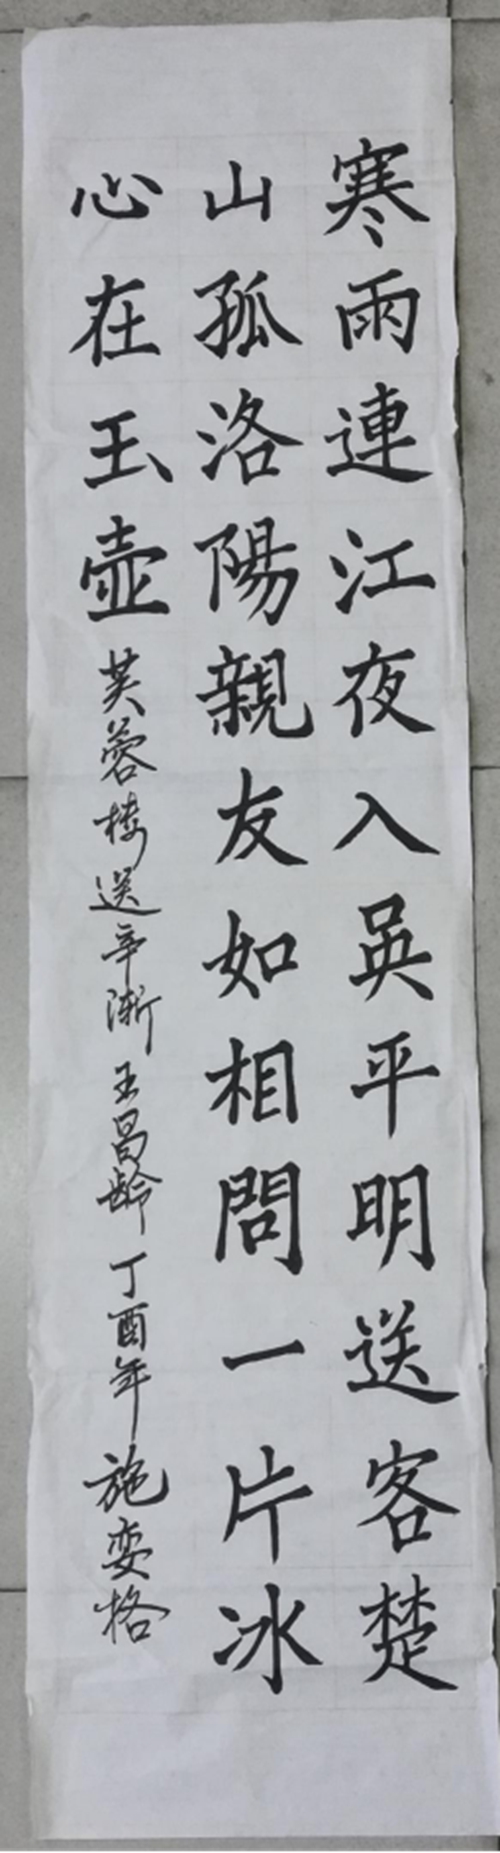 寒雨連江夜入吳平明送客楚
山孤洛陽親友如相問一片冰
心在玉壺芙蓉楼送辛渐王昌龄丁酉年施奕格